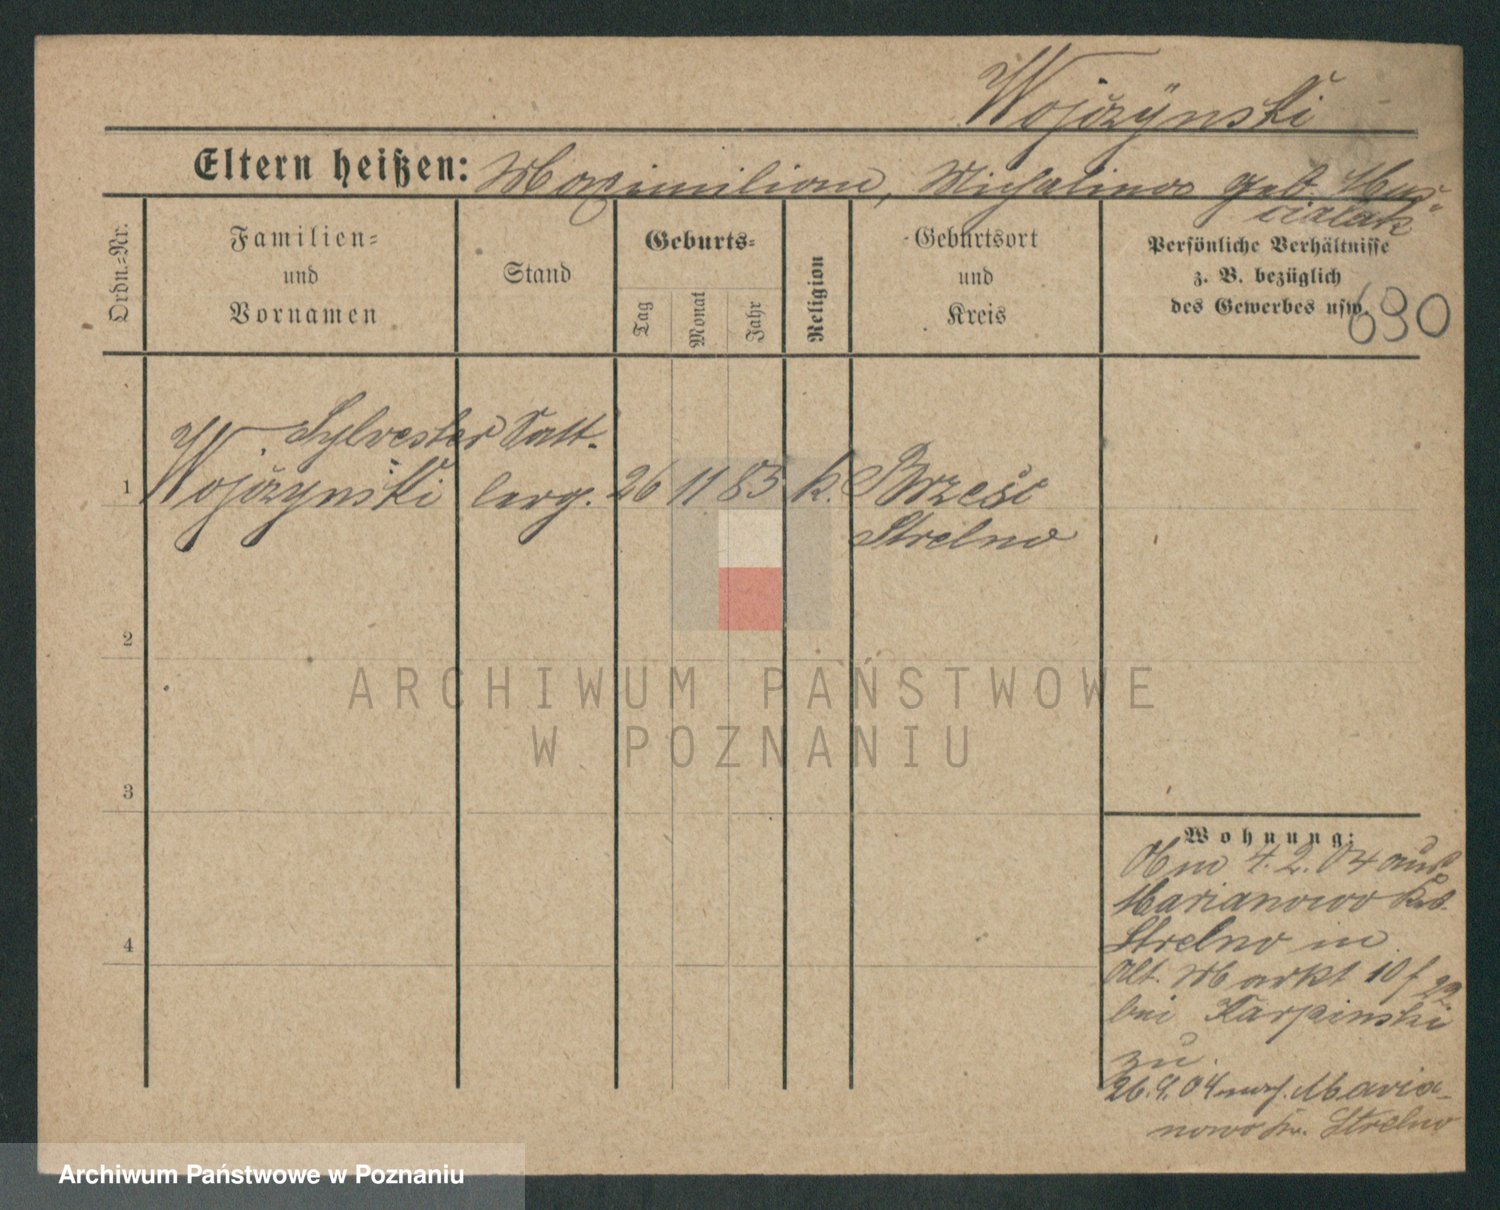 Wojczÿnski
Eltern heißen: Maximilian, Michalina geb. Mus-
cialak
Ordn.-Nr.
Familien-
und
Vornamen
Stand
Geburts-
Tag
Monat
Jahr
Religion
Geburtsort
und
Kreis
Persönliche Verhältnisse
z. B. bezüglich
des Gewerbes usw.
690
Sylvester Satt-
1 Wojczynski lerg. 26 11 83 k. Brześć
Strelno
2
3
4
ARCHIWUM PAŃSTWOWE
W POZNANIU
Wohnung:
Am 4.2.04 aus
Marianowo Krs.
Strelno in
Alt. Markt 10
bei Karpinski
zu.
26.9.04 nach Maria-
nowo Kr. Strelno
Archiwum Państwowe w Poznaniu